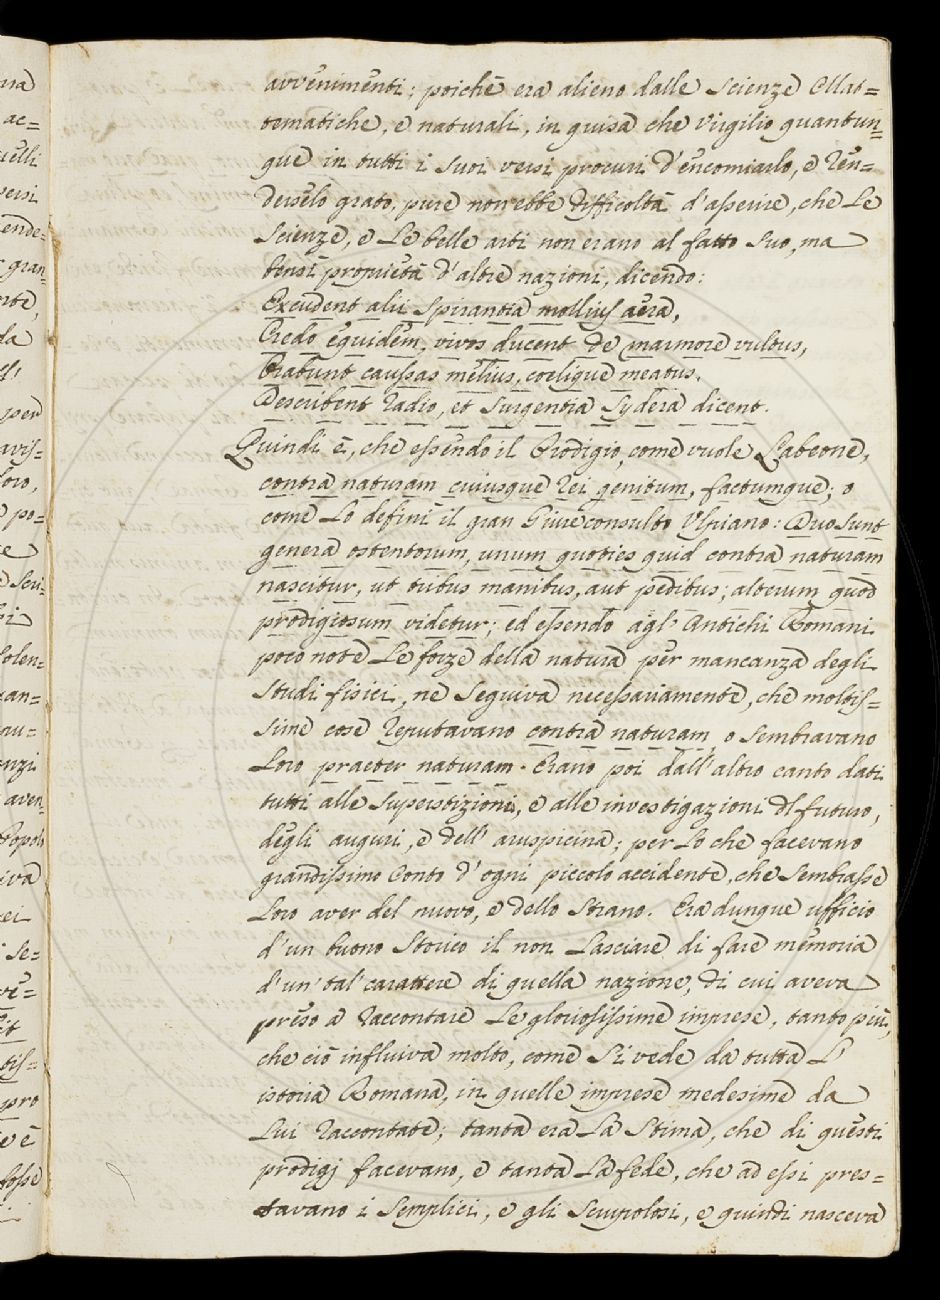 avvenimenti; poichè era alieno dalle Scienze Mat=
tematiche, e naturali, in guisa che Virgilio quantun=
que in tutti i suoi versi procuri d'encomiarlo, e ren=
derselo grato, pure non ebbe difficoltà d'asserire, che le
Scienze, e le belle arti non erano al fatto suo, ma
bensì proprietà d'altre nazioni, dicendo:
Excudent alii spirantia mollius aera,
Credo equidem, vivos ducent de marmore vultus,
Orabunt caussas melius, coelique meatus.
Describent radio, et surgentia sydera dicent.
Quindi è, che essendo il Prodigio, come vuole Labeone,
contra naturam cuiusque rei genitum, factumque; o
come lo definì il gran Giureconsulto Ulpiano: Duo sunt
genera ostentorum, unum quoties quid contra naturam
nascitur, ut tribus manibus, aut pedibus; alterum quod
prodigiosum videtur; ed essendo agl' Antichi Romani
poco note le forze della natura per mancanza degli
studi fisici, ne seguiva necessariamente, che moltis=
sime cose reputavano contra naturam, o sembravano
loro praeter naturam. Erano poi dall'altro canto dati
tutti alle superstizioni, e alle investigazioni del futuro,
degli auguri, e dell' aruspicina; per lo che facevano
grandissimo conto d' ogni piccolo accidente, che sembrasse
loro aver del nuovo, e dello strano. Era dunque ufficio
d'un buono Storico il non lasciare di fare memoria
d'un' tal' carattere di quella nazione, di cui aveva
preso a raccontare le gloriosissime imprese, tanto più,
che ciò influiva molto, come si vede da tutta l'
istoria Romana, in quelle imprese medesime da
lui raccontate; tanta era la stima, che di questi
prodigj facevano, e tanta la fede, che ad essi pres=
tavano i semplici, e gli scrupolosi, e quindi nasceva